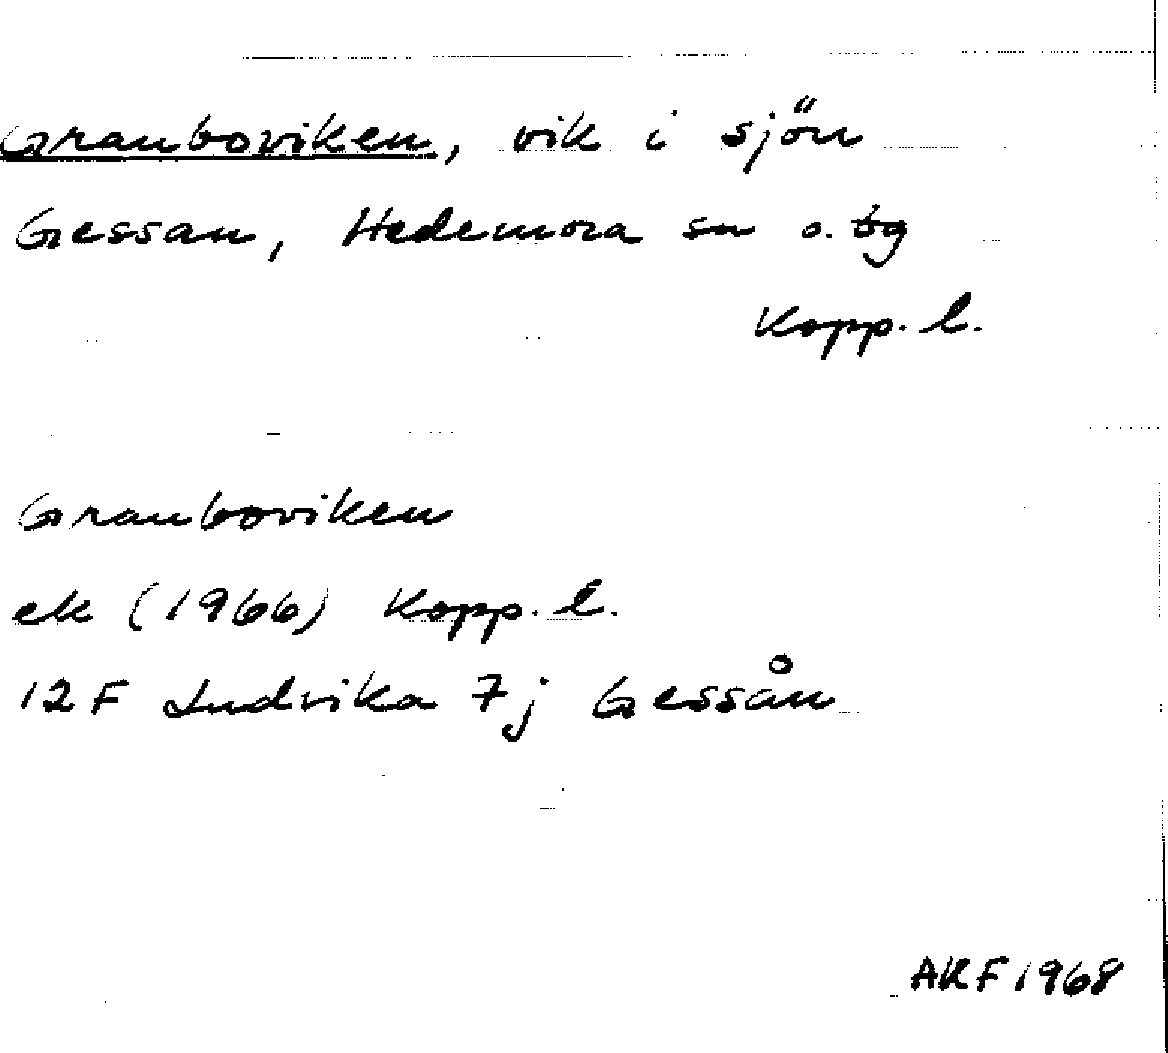 Granboviken, vik i sjön
Gessan, Hedemora sn o. tg
Kopp. l.
Granboviken
ek (1966) Kopp. l.
12F Ludvika 7j Gessån
AKF 1968